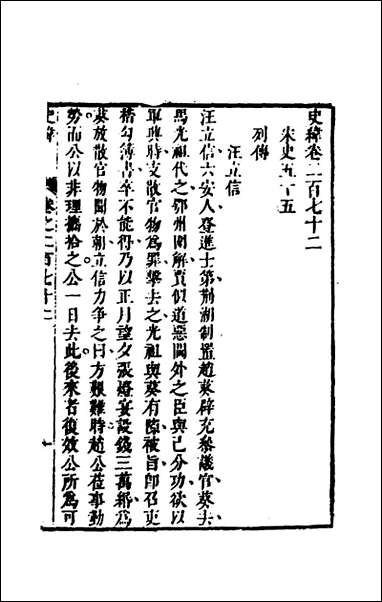 史緯卷二百七十二
宋史五十五
列傳
汪立信
汪立信六安人登進士第荊湖制置趙葵辟充叅議官葵去
馬光祖代之鄂州圍解賈似道惡閫外之臣與己分功欲以
軍興時支散官物為罪擊去之光祖與葵有隙被旨卽召吏
稽勾簿書卒不能得乃以正月望夕張燈宴設錢三萬緡為
葵放散官物聞於朝立信力爭之曰方艱難時趙公蒞事勤
勞而公以非理攟拾之公一日去此後來者復效公所為可
史緯 卷之二百七十二 一